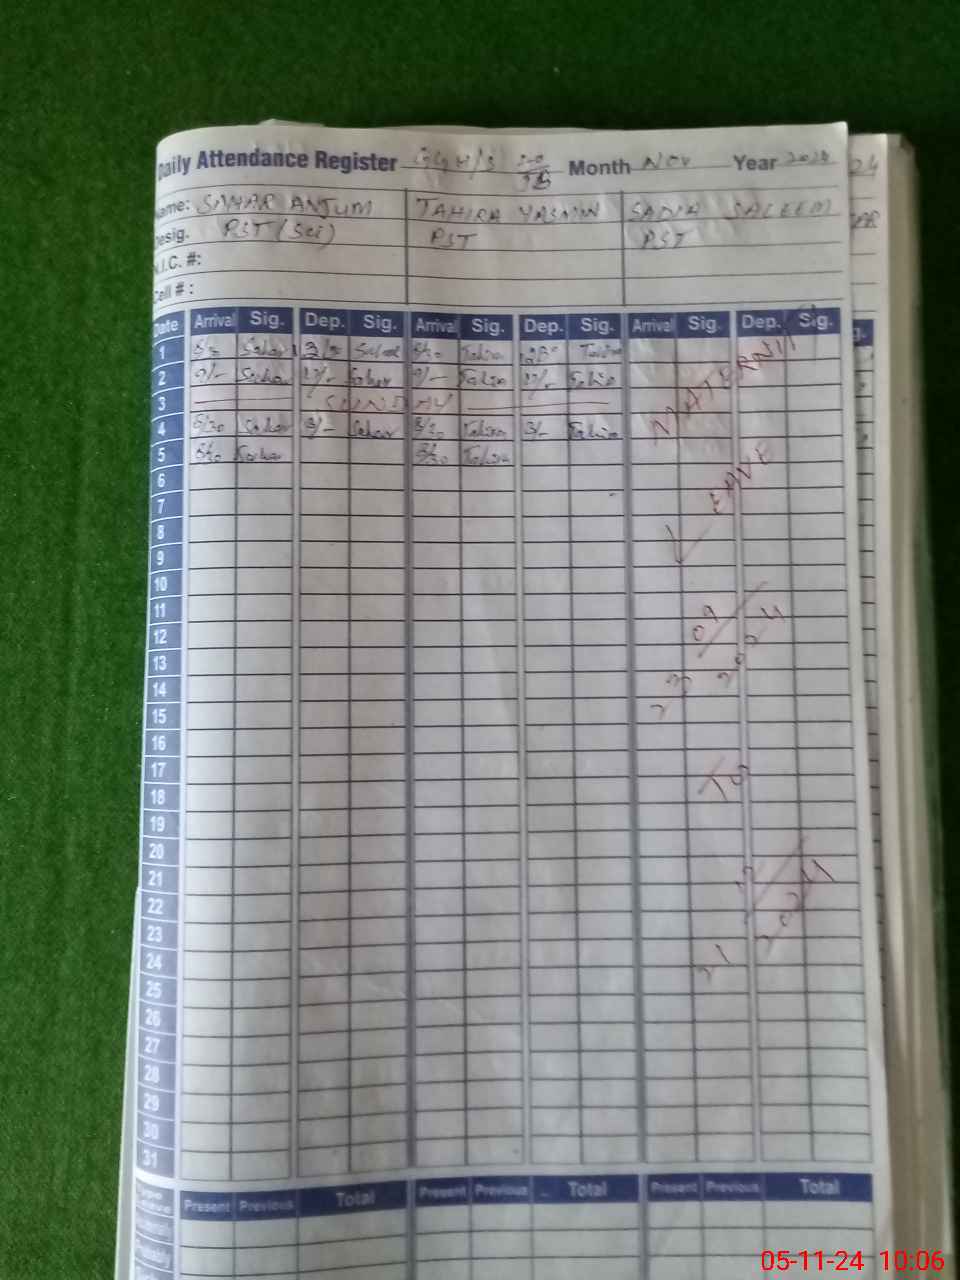 Daily Attendance Register GGH/S Month Nov Year 2024
Name: SAHAR ANJUM TAHIRA YASMIN SADIA SALEEM
Desig. PST (Sci) PST PST
N.I.C. #:
Cell # :
Date Arrival Sig. Dep. Sig. Arrival Sig. Dep. Sig. Arrival Sig. Dep. Sig.
1 Sahar Sahar 8/30 Tahira Tahira
2 9/- Sahar 12/- Sahar 9/- Tahira 12/- Tahira
3 SUNDAY
4 8/30 Sahar 3/- Sahar 8/30 Tahira 3/- Tahira
5 8/30 Sahar 8/30 Tahira
MATERNITY
LEAVE
6
7
8
9
10
11
12
13
14
15
23 09 2024
16
17
18
To
19
20
21
22
23
24
21 12 2024
25
26
27
28
29
30
31
Present Previous Total Present Previous Total Present Previous Total
Probably
05-11-24 10:06